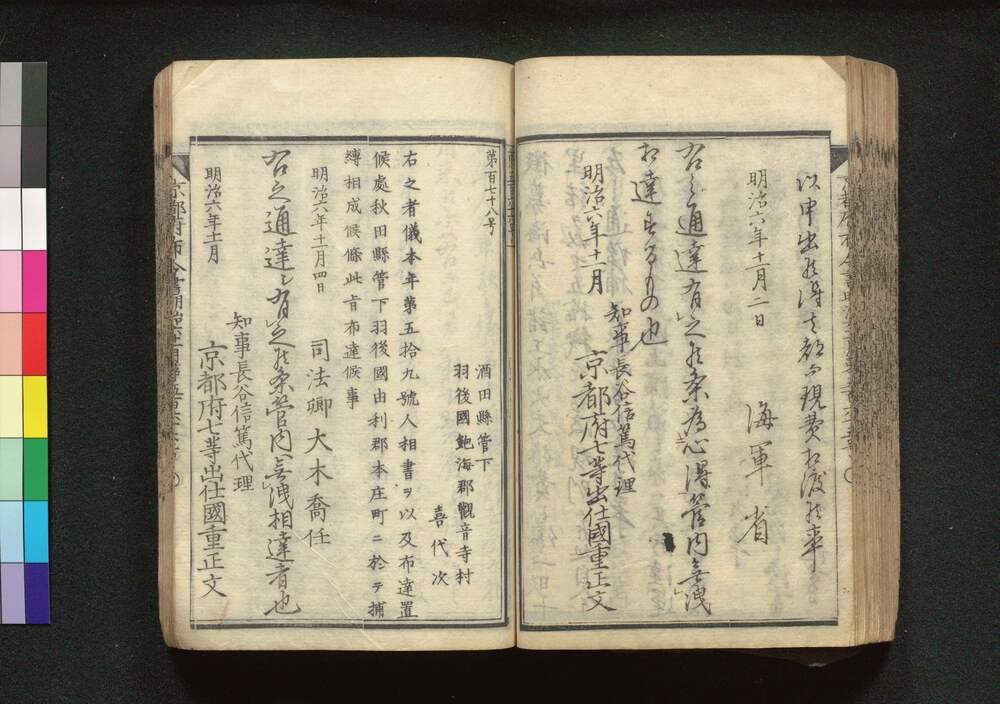 以申出候得者都而現費相渡候事
明治六年十一月二日
海軍省
右之通達有之候条為心得管内無洩
相達するもの也
明治六年十一月
知事長谷信篤代理
京都府七等出仕國重正文
第百七十八号
酒田縣管下
羽後國飽海郡觀音寺村
喜代次
右之者儀本年第五拾九號人相書ヲ以及布達置
候處秋田縣管下羽後國由利郡本庄町ニ於テ捕
縛相成候條此旨布達候事
明治六年十一月四日
司法卿大木喬任
右之通達有之候条管内無洩相達者也
知事長谷信篤代理
明治六年十一月
京都府七等出仕國重正文